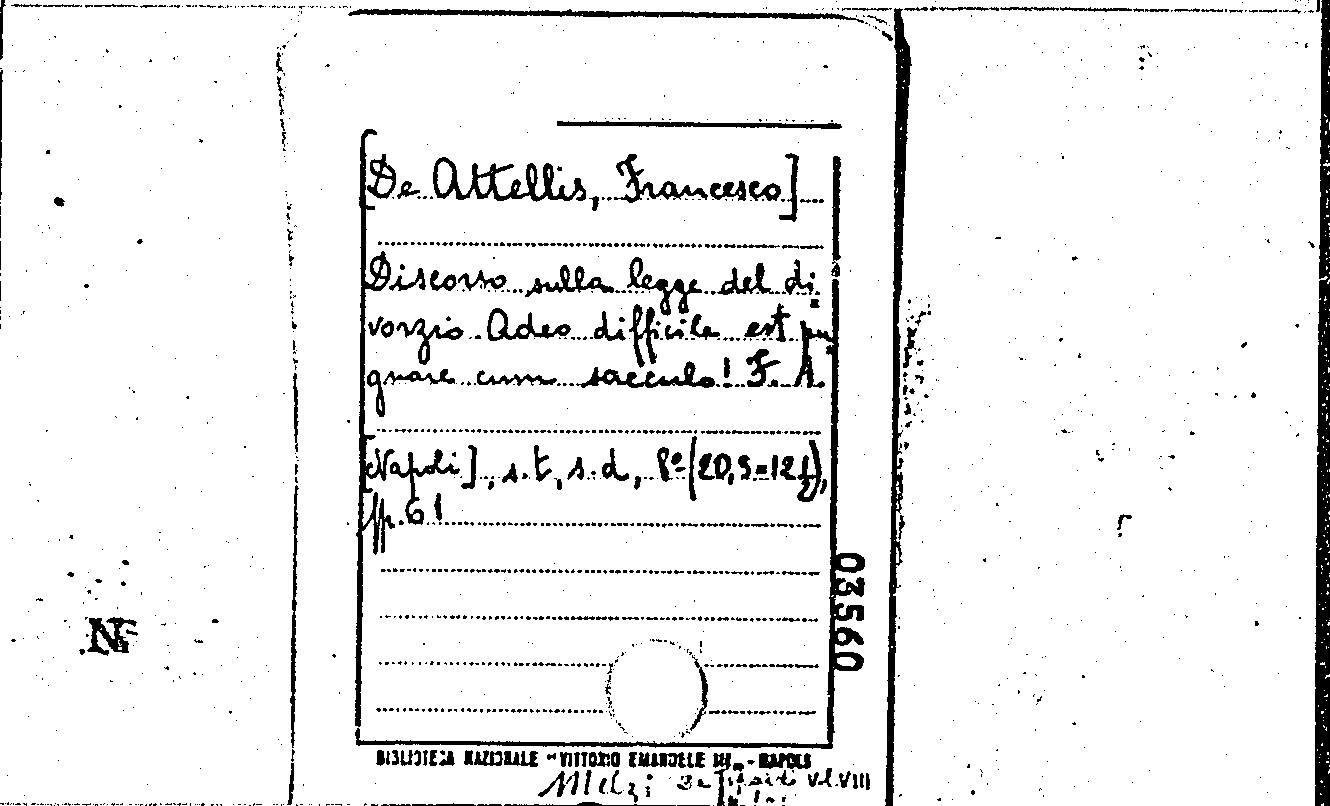 [De Attellis, Francesco]
Discorso sulla legge del di=
vorzio. Adeo difficile est pu=
gnare cum sacculo! F. A.
[Napoli], s.t., s.d., 8º (20,5=12½),
pp. 61
03560
NF
BIBLIOTECA NAZIONALE "VITTORIO EMANUELE III" - NAPOLI
Melzi Vol. VIII